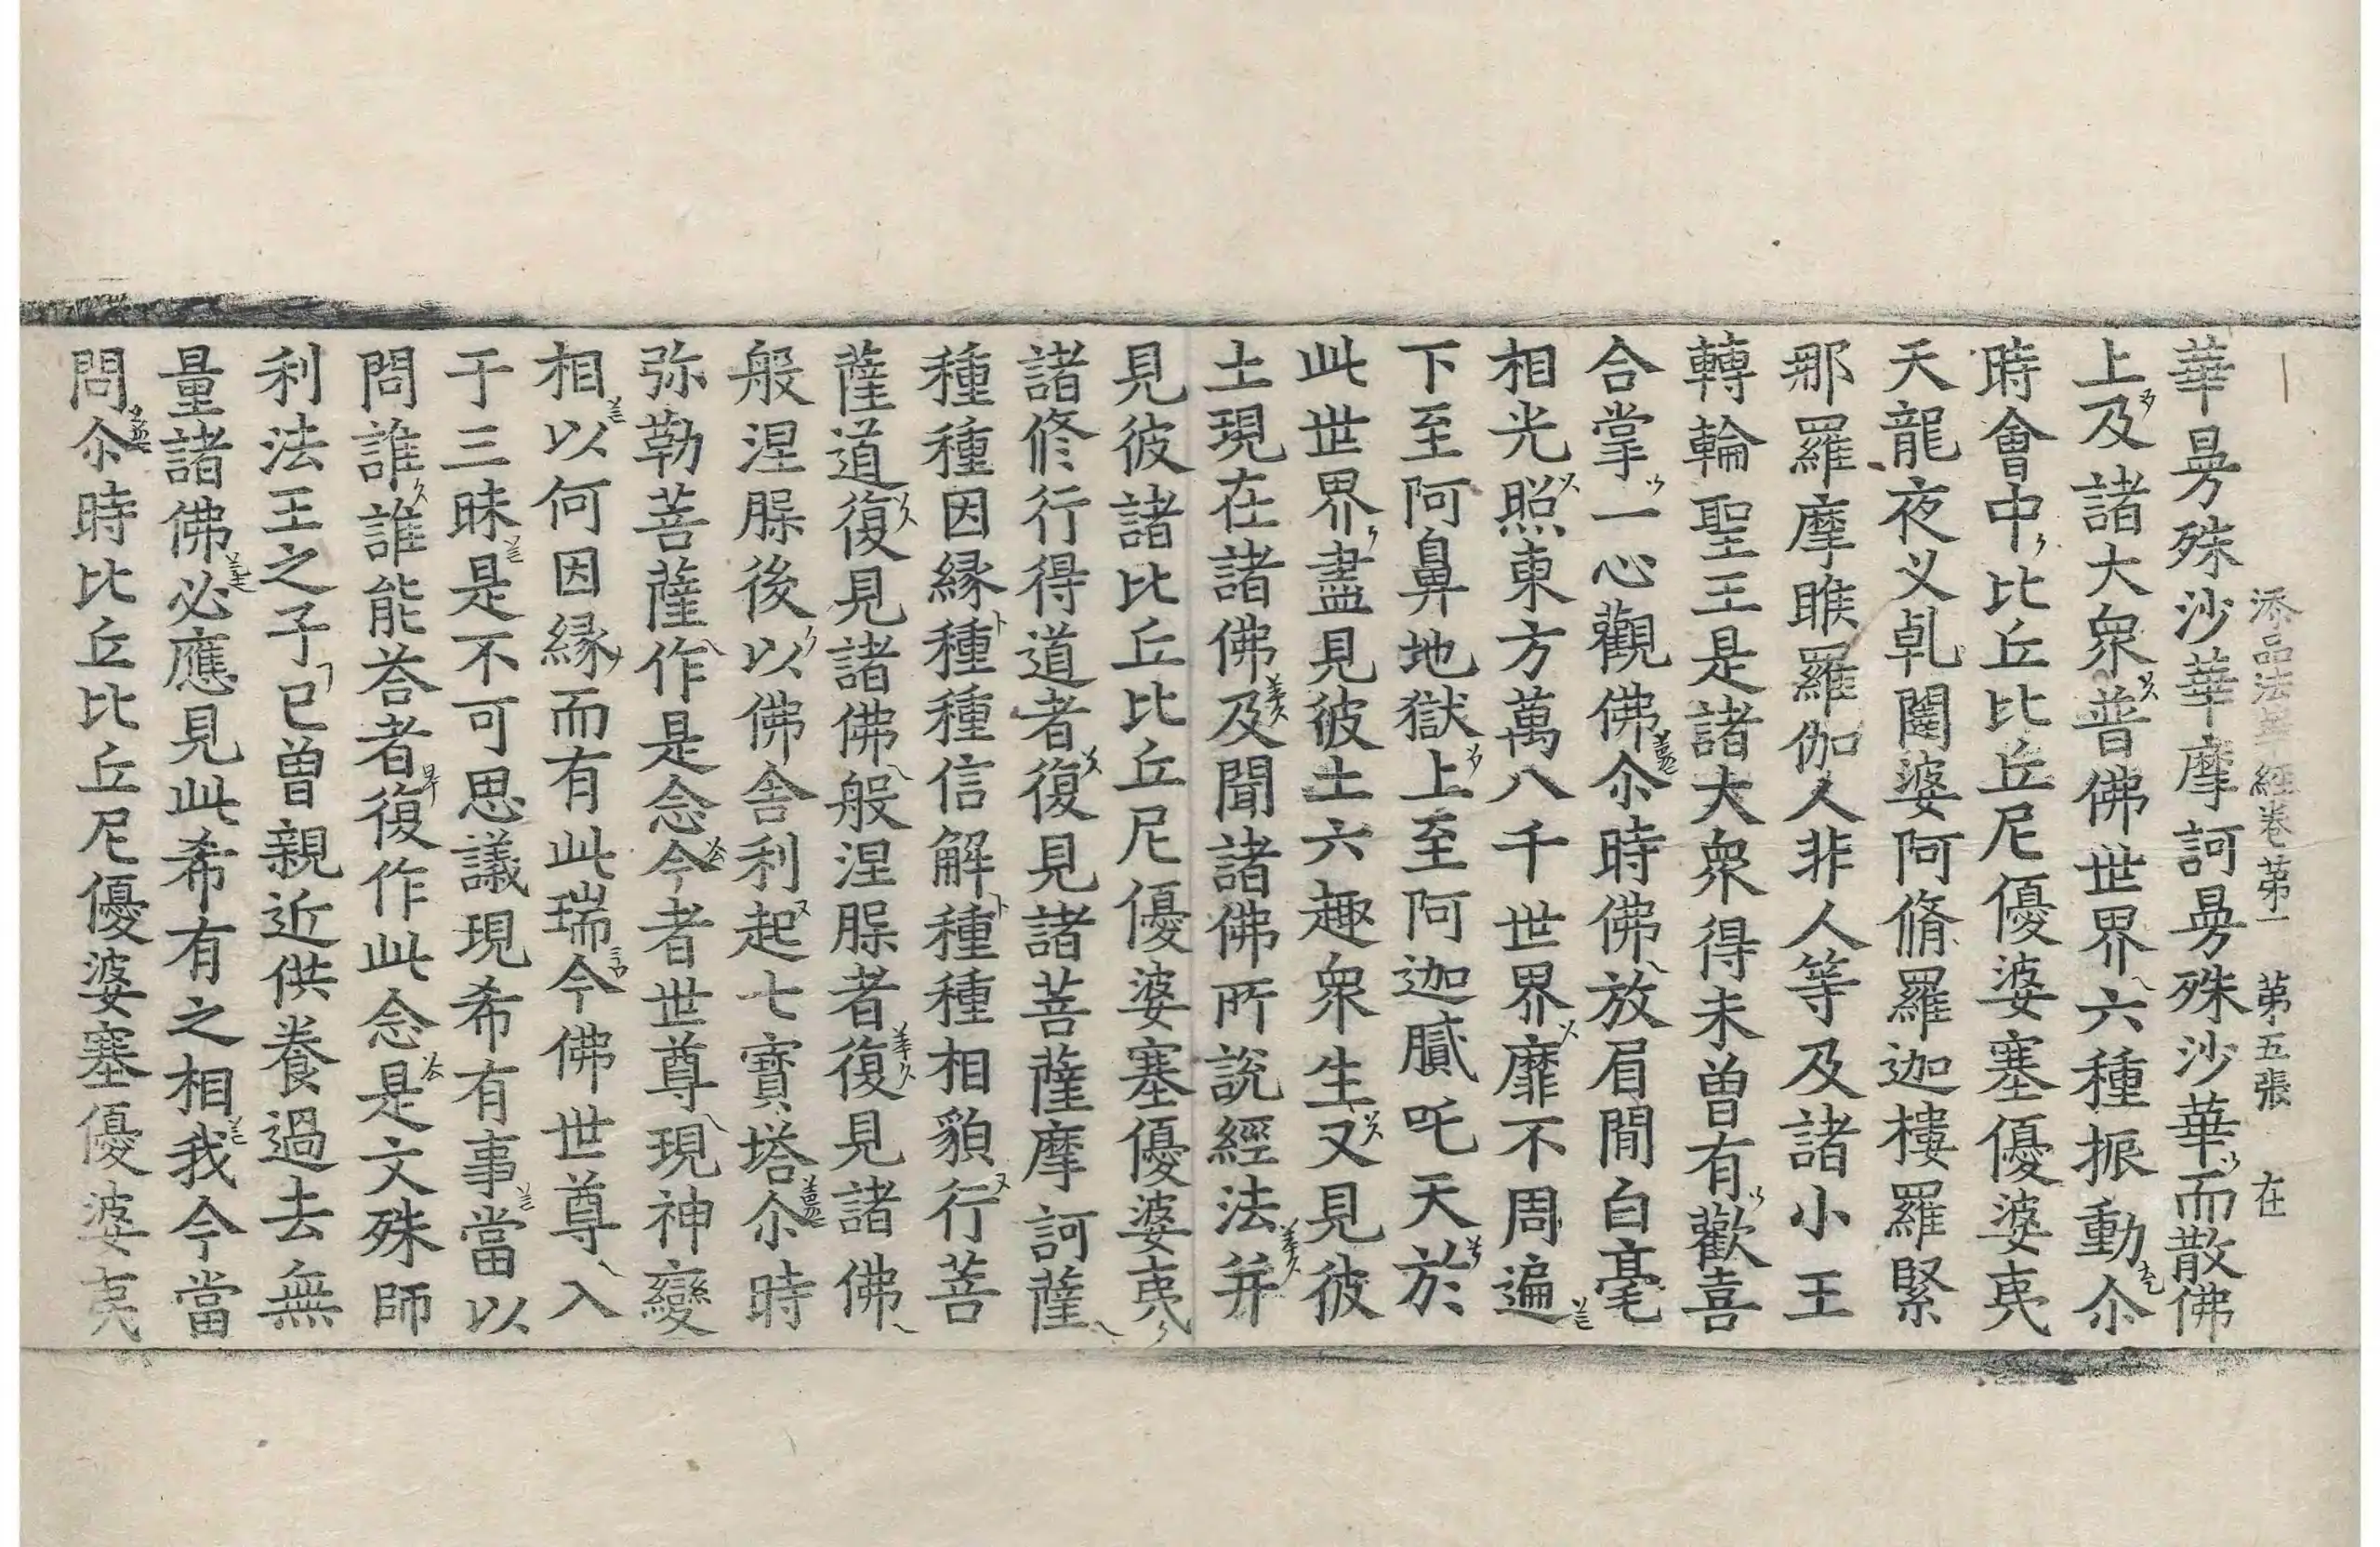 添品法華經卷第一 第五張 在
華曼殊沙華摩訶曼殊沙華而散佛
上及諸大衆普佛世界六種振動尒
時會中比丘比丘尼優婆塞優婆夷
天龍夜叉乹闥婆阿脩羅迦樓羅緊
那羅摩睺羅伽人非人等及諸小王
轉輪聖王是諸大衆得未曾有歡喜
合掌一心觀佛尒時佛放眉閒白毫
相光照東方萬八千世界靡不周遍
下至阿鼻地獄上至阿迦膩吒天於
此世界盡見彼土六趣衆生又見彼
土現在諸佛及聞諸佛所說經法并
見彼諸比丘比丘尼優婆塞優婆夷
諸修行得道者復見諸菩薩摩訶薩
種種因縁種種信解種種相貌行菩
薩道復見諸佛般涅槃者復見諸佛
般涅槃後以佛舍利起七寶塔尒時
弥勒菩薩作是念今者世尊現神變
相以何因縁而有此瑞今佛世尊入
于三昧是不可思議現希有事當以
問誰誰能荅者復作此念是文殊師
利法王之子已曾親近供養過去無
量諸佛必應見此希有之相我今當
問尒時比丘比丘尼優婆塞優婆夷